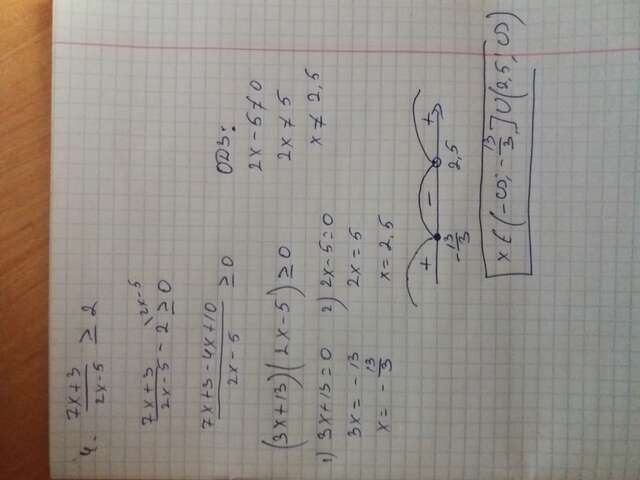 4. (7x+3)/(2x-5) ≥ 2
(7x+3)/(2x-5) - 2 \2x-5 ≥ 0
(7x+3-4x+10)/(2x-5) ≥ 0
ОДЗ:
2x-5≠0
2x ≠ 5
x ≠ 2,5
(3x+13)(2x-5) ≥ 0
1) 3x+13=0
3x = -13
x = -13/3
2) 2x-5=0
2x = 5
x = 2,5
+ - +
-13/3 2,5
x ∈ (-∞; -13/3] ∪ (2,5; ∞)